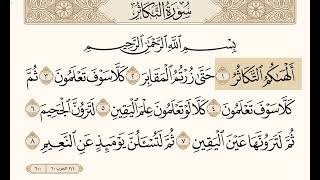 سُورَةُ التَّكَاثُرِ
بِسْمِ اللَّهِ الرَّحْمَٰنِ الرَّحِيمِ
أَلْهَاكُمُ التَّكَاثُرُ ١ حَتَّىٰ زُرْتُمُ الْمَقَابِرَ ٢ كَلَّا سَوْفَ تَعْلَمُونَ ٣ ثُمَّ
كَلَّا سَوْفَ تَعْلَمُونَ ٤ كَلَّا لَوْ تَعْلَمُونَ عِلْمَ الْيَقِينِ ٥ لَتَرَوُنَّ الْجَحِيمَ ٦
ثُمَّ لَتَرَوُنَّهَا عَيْنَ الْيَقِينِ ٧ ثُمَّ لَتُسْأَلُنَّ يَوْمَئِذٍ عَنِ النَّعِيمِ ٨
٦٠٠ الحزب ٦٠